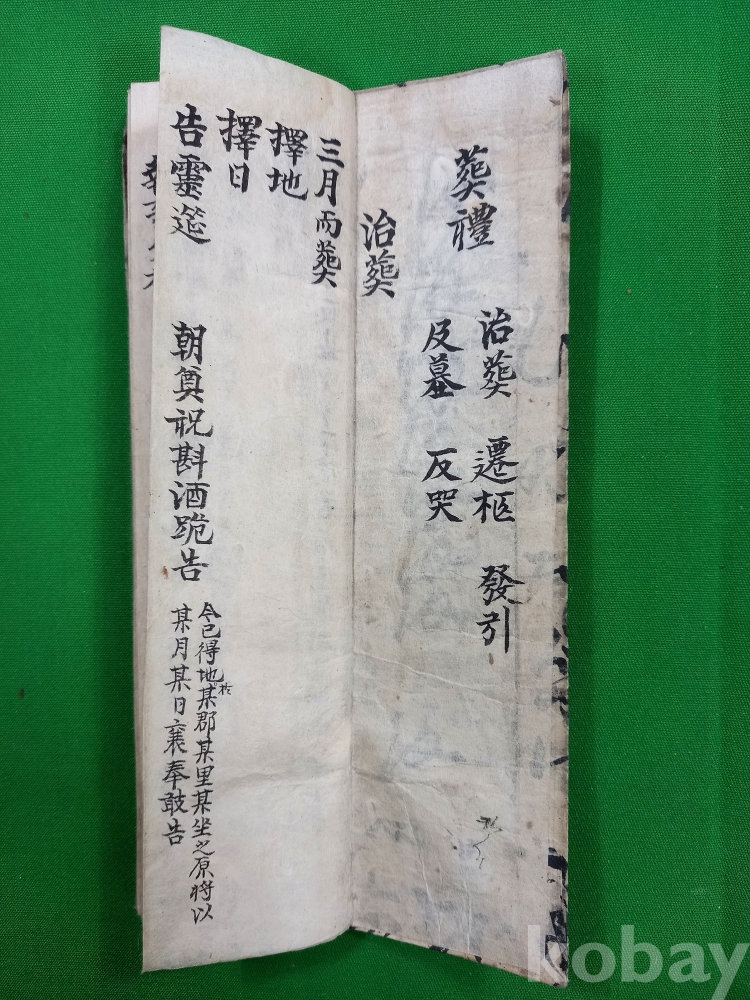 葬禮
治葬 遷柩 發引
及墓 反哭
治葬
三月而葬
擇地
擇日
告靈筵 朝奠祝斟酒跪告
今已得地於某郡某里某坐之原將以
某月某日襄奉敢告
kobay